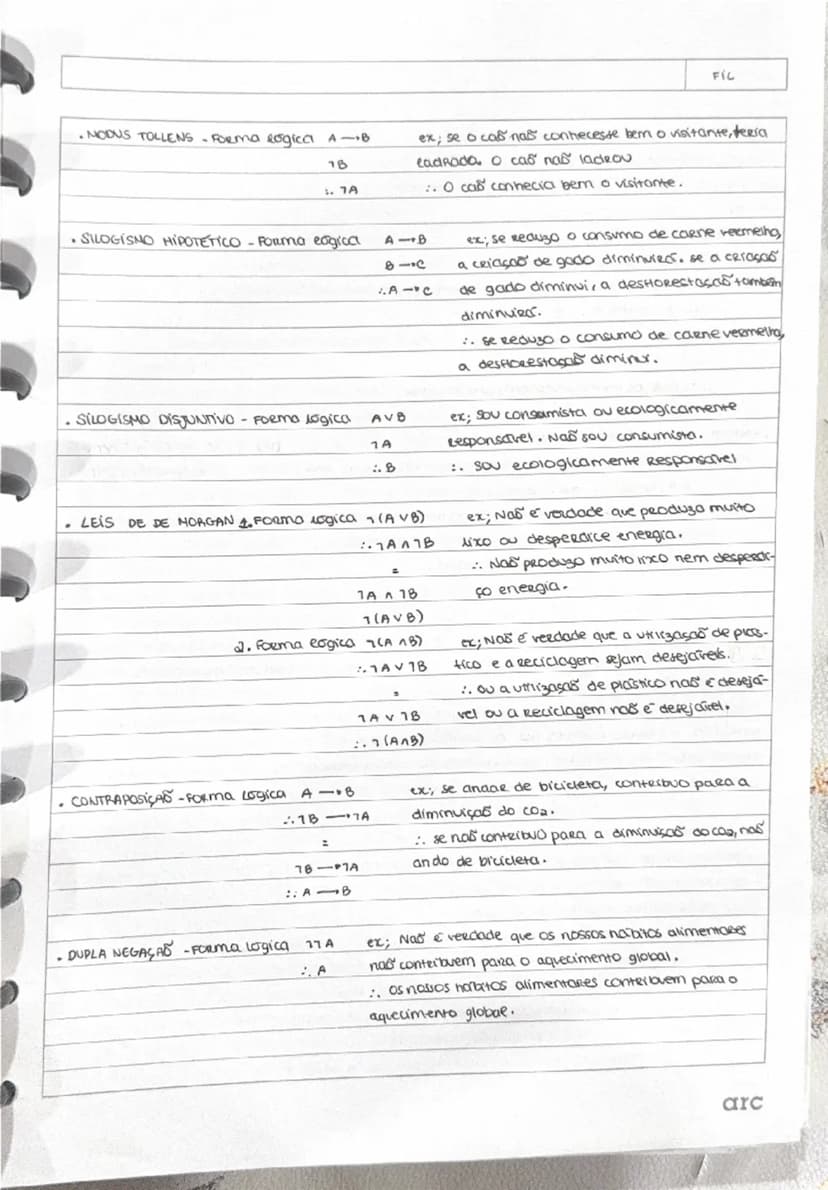 FIL
. MODUS TOLLENS - Forma lógica A → B ex; se o cão não conhecesse bem o visitante, teria
¬B ladrado. O cão não ladrou
∴ ¬A ∴ O cão conhecia bem o visitante.
. SILOGISMO HIPOTÉTICO - Forma lógica A → B ex; se reduzo o consumo de carne vermelha,
B → C a criação de gado diminuirá. se a criação
∴ A → C de gado diminui, a desflorestação também
diminuirá.
∴ se reduzo o consumo de carne vermelha,
a desflorestação diminui.
. SILOGISMO DISJUNTIVO - Forma lógica A ∨ B ex; Sou consumista ou ecologicamente
¬A responsável. Não sou consumista.
∴ B ∴ Sou ecologicamente responsável
. LEIS DE DE MORGAN 1. Forma lógica ¬(A ∨ B) ex; Não é verdade que produza muito
∴ ¬A ∧ ¬B lixo ou desperdice energia.
= ∴ Não produzo muito lixo nem desperdi-
¬A ∧ ¬B ço energia.
¬(A ∨ B)
2. Forma lógica ¬(A ∧ B) ex; Não é verdade que a utilização de plás-
∴ ¬A ∨ ¬B tico e a reciclagem sejam desejáveis.
= ∴ ou a utilização de plástico não é desejá-
¬A ∨ ¬B vel ou a reciclagem não é desejável.
∴ ¬(A∧B)
. CONTRAPOSIÇÃO - Forma lógica A → B ex; se andar de bicicleta, contribuo para a
∴ ¬B → ¬A diminuição do CO2.
= ∴ se não contribuo para a diminuição do CO2, não
¬B → ¬A ando de bicicleta.
∴ A → B
. DUPLA NEGAÇÃO - Forma lógica ¬¬A ex; Não é verdade que os nossos hábitos alimentares
∴ A não contribuem para o aquecimento global.
∴ Os nossos hábitos alimentares contribuem para o
aquecimento global.
arc